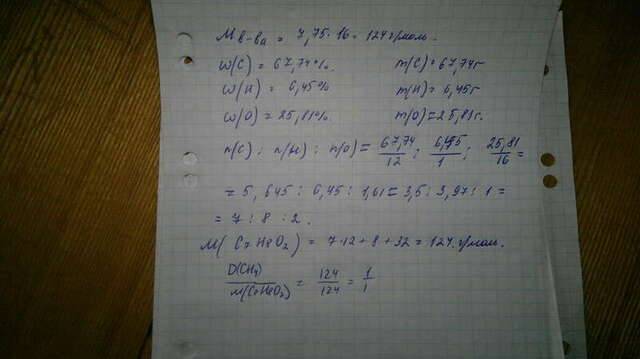 M в-ва = 7,75 · 16 = 124 г/моль.
w(C) = 67,74%. m(C) = 67,74г
w(H) = 6,45% m(H) = 6,45г
w(O) = 25,81%. m(O) = 25,81г.
n(C) : n(H) : n(O) = 67,74/12 ; 6,45/1 ; 25,81/16 =
= 5,645 : 6,45 : 1,61 = 3,5 : 3,97 : 1 =
= 7 : 8 : 2.
M(C7H8O2) = 7·12 + 8 + 32 = 124 г/моль.
D(CH4)/M(C7H8O2) = 124/124 = 1/1